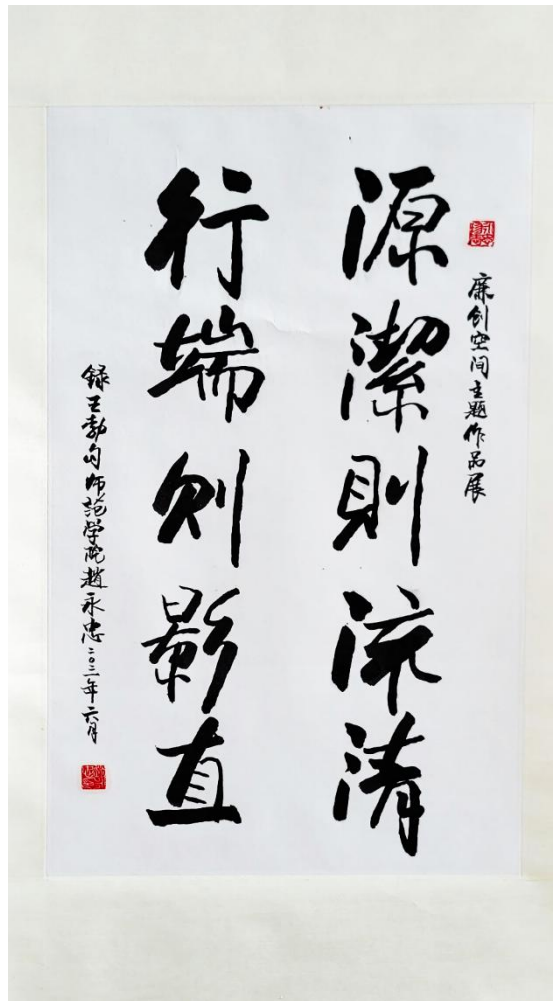 廉创空间主题作品展
源潔則流清
行端则影直
録王勃句师范学院趙永忠二〇二一年六月